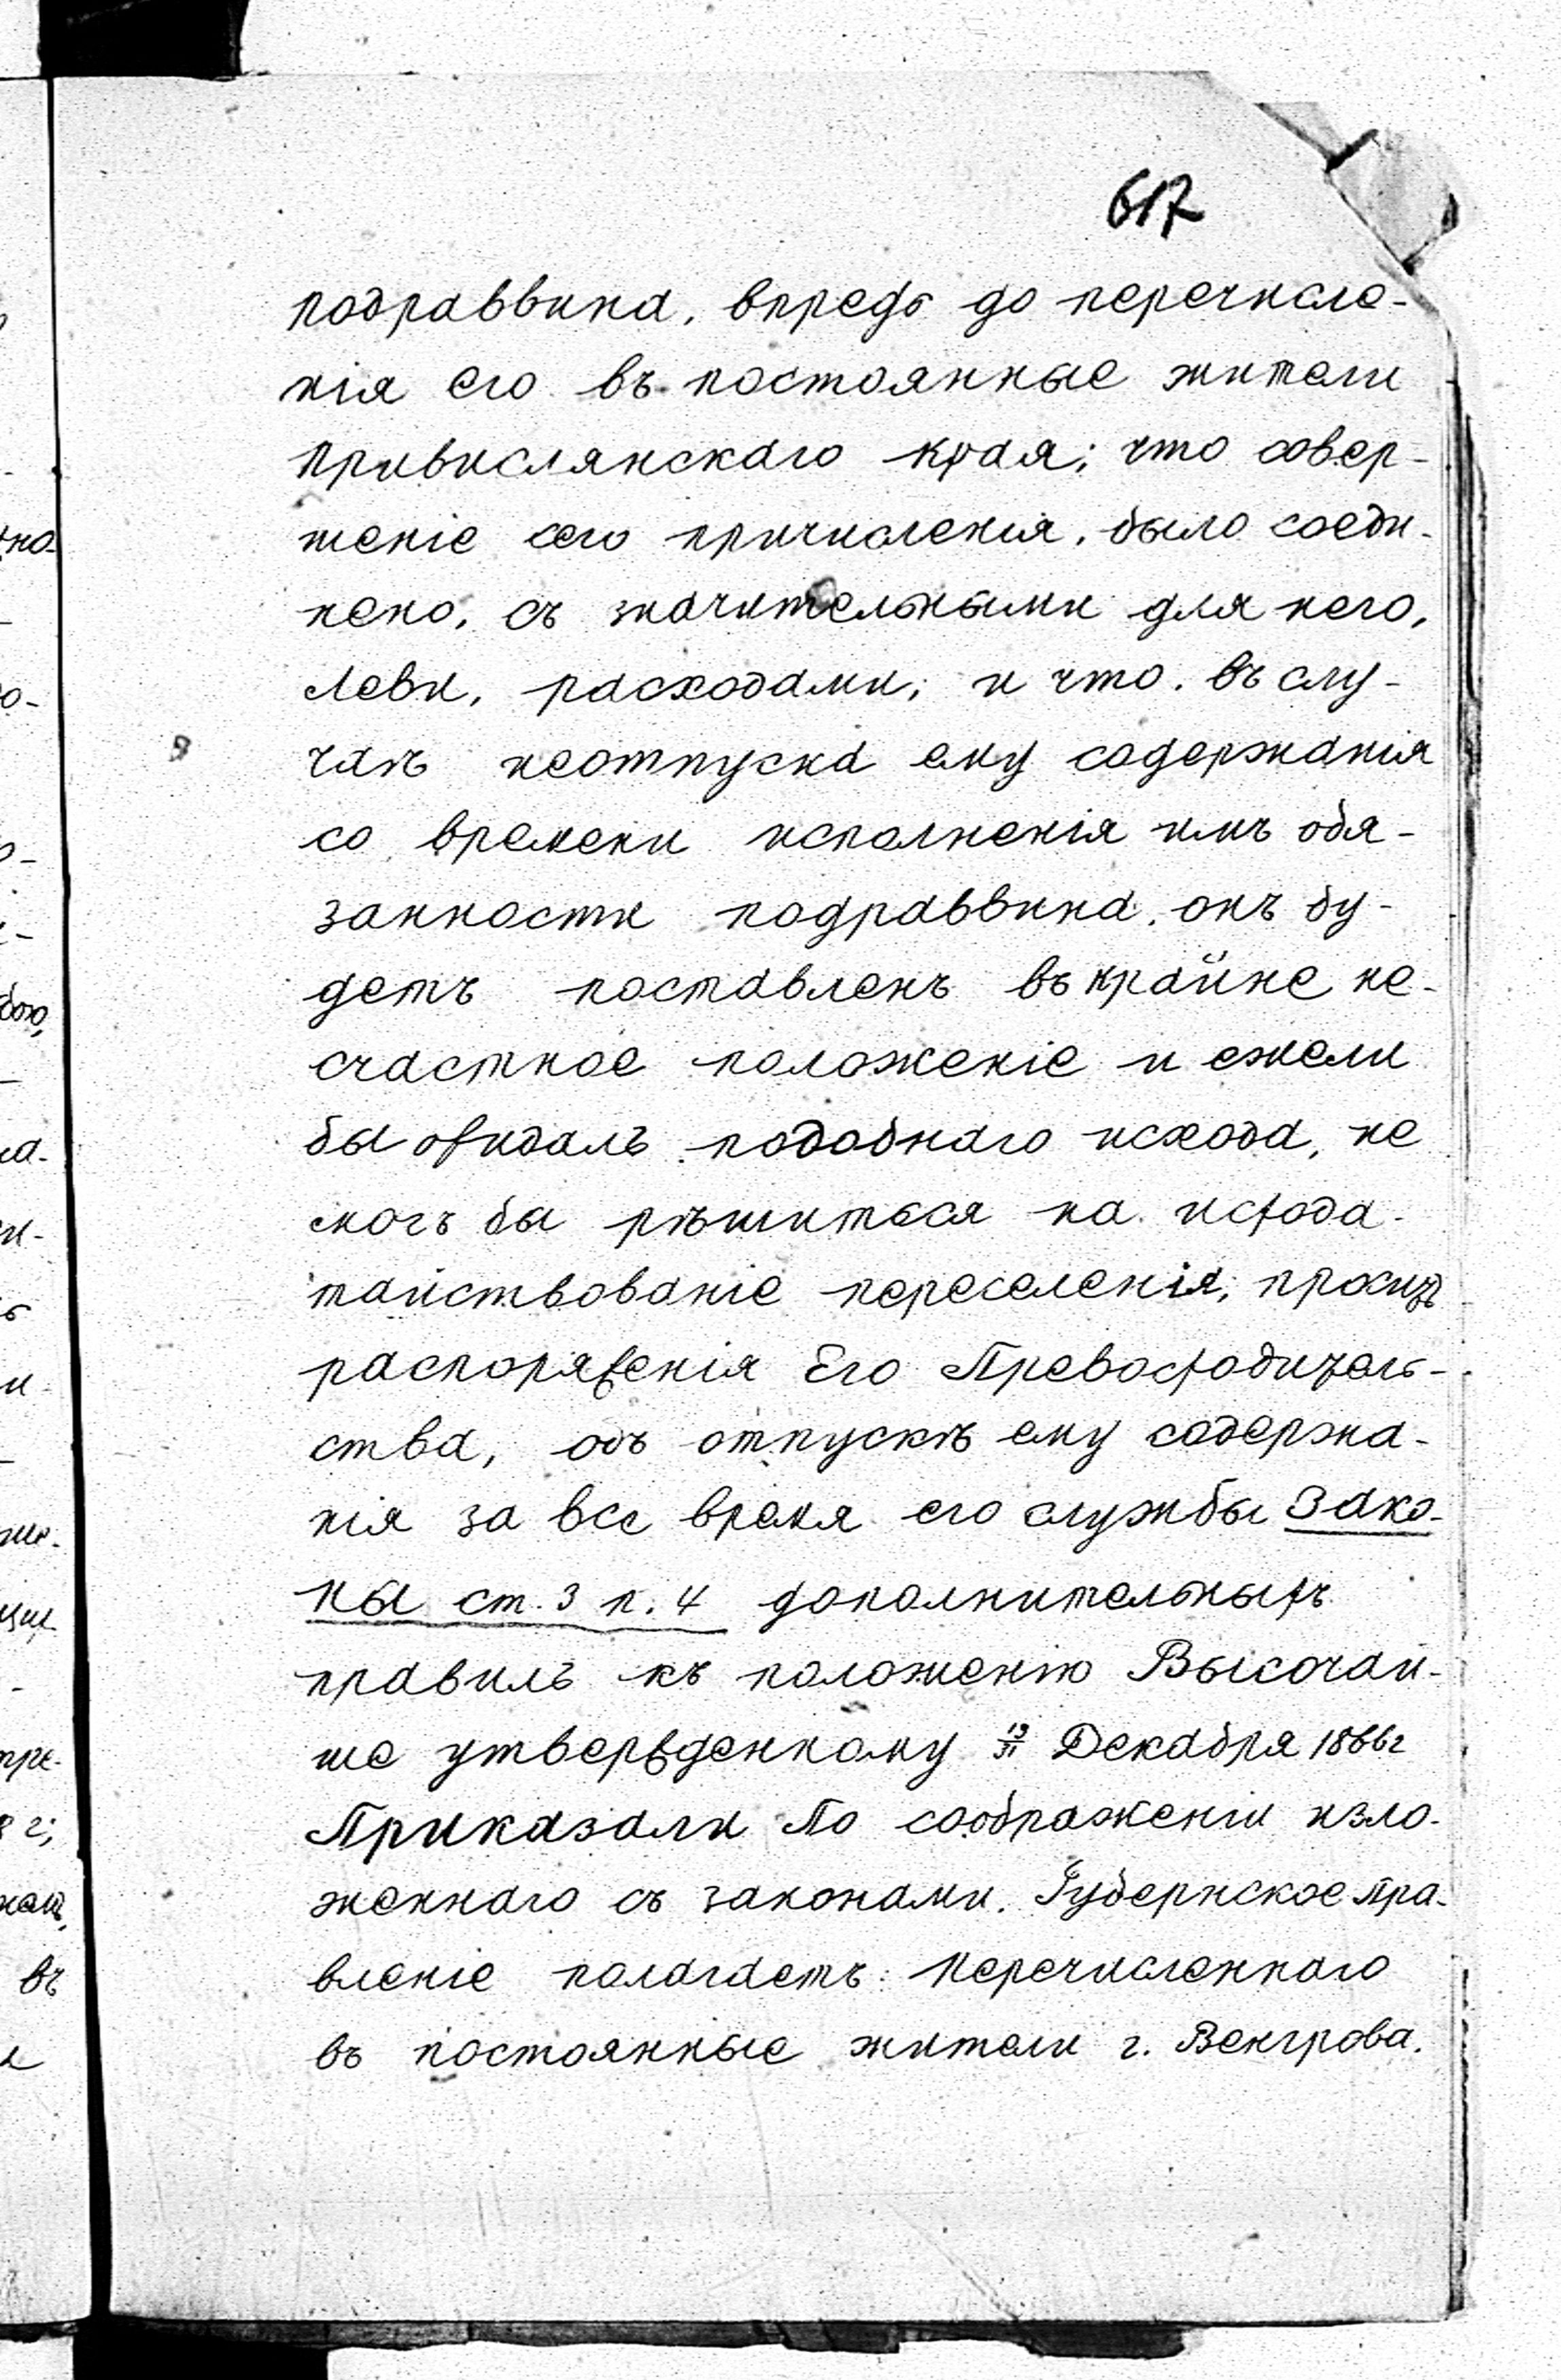 617
подраввина, впредь до перечисле-
нія его въ постоянные жители
Привислянскаго края; что совер-
шеніе сего причисленія, было соеди-
нено, съ значительными для него,
Леви, расходами; и что, въ слу-
чаѣ неотпуска ему содержанія
со времени исполненія имъ обя-
занности подраввина, онъ бу-
детъ поставленъ въ крайне не-
счастное положеніе и ежели
бы ожидалъ подобнаго исхода, не
могъ бы рѣшиться на исхода-
тайствованіе переселенія; проситъ
распоряженія Его Превосходитель-
ства, объ отпускѣ ему содержа-
нія за все время его службы Зако-
ны ст. 3 п. 4 дополнительныхъ
правилъ къ положенію Высочай-
ше утвержденному 19/31 Декабря 1866г
Приказали По соображеніи изло-
женнаго съ законами, Губернское Пра-
вленіе полагаетъ: Перечисленнаго
въ постоянные жители г. Венгрова,
въ